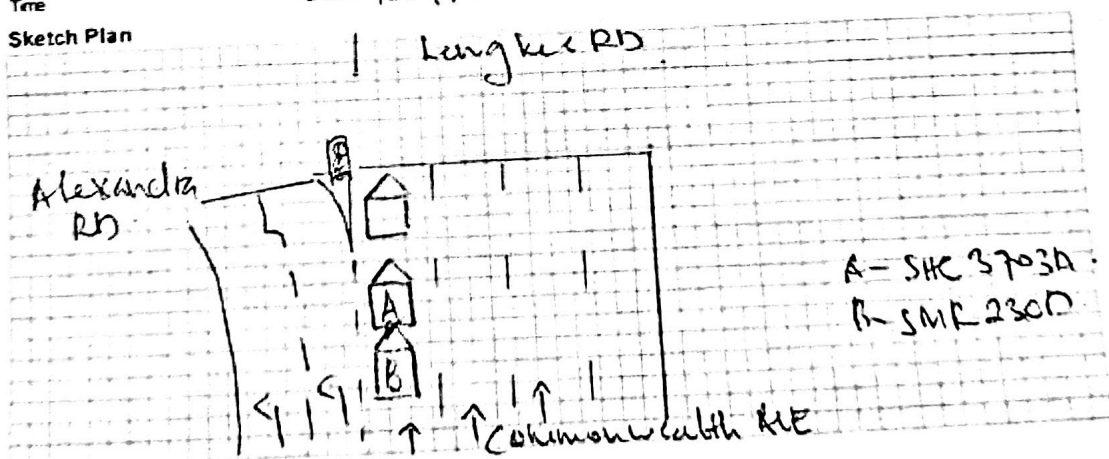 Time
Sketch Plan
Lengkee RD
Alexandra
RD
A
B
A - SHC 3703A.
B - SMR 230D
Commonwealth AVE